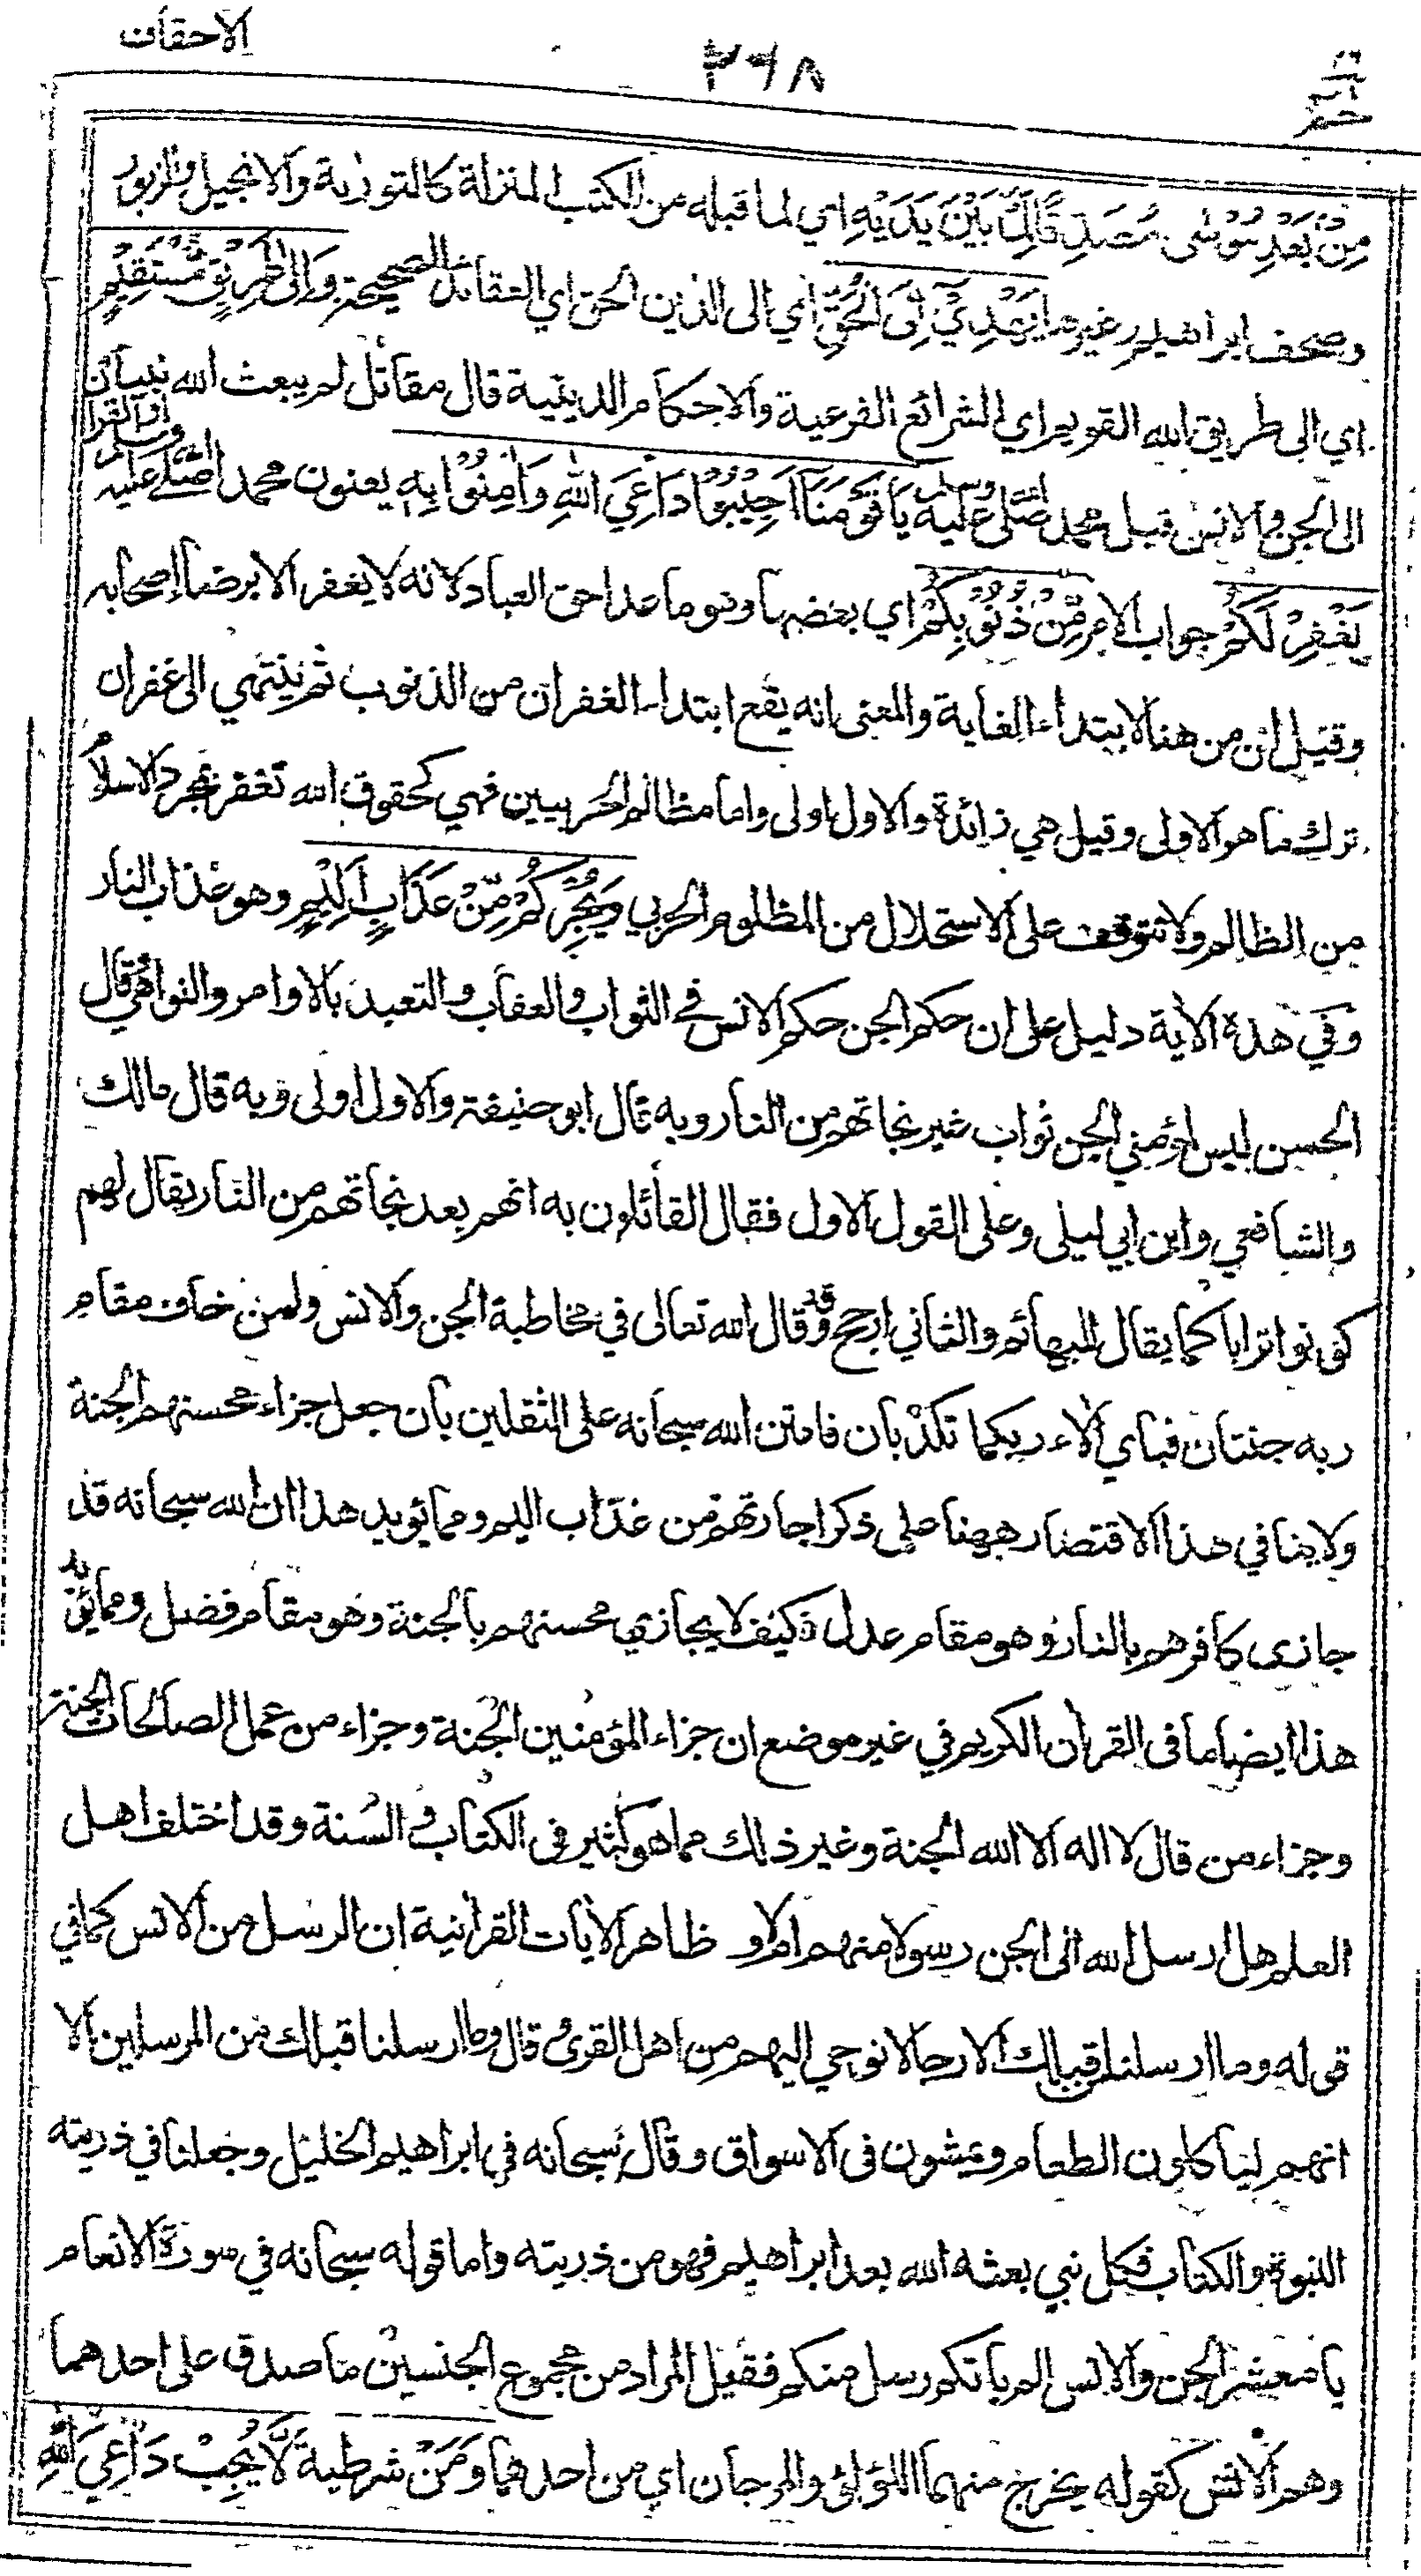 الاحقاف
٢٦٨
حم
مِنْ بَعْدِ مُوْسٰى مُصَدِّقًا لِّمَا بَيْنَ يَدَيْهِ اي لما قبله من الكتب المنزلة كالتورٰىة والانجيل والزبور
وصحف ابراهيم وغيرها يَهْدِيْ اِلَى الْحَقِّ اي الى الدين الحق اي العقائد الصحيحة وَاِلٰى طَرِيْقٍ مُّسْتَقِيْمٍ
اي الى طريق الله القويم اي الشرائع الفرعية والاحكام الدينية قال مقاتل لم يبعث الله نبيا
الى الجن والانس قبل محمد صلى الله عليه وسلم يَا قَوْمَنَا اَجِيْبُوْا دَاعِيَ اللهِ وَاٰمِنُوْا بِهٖ يعنون محمدا صلى الله عليه وسلم
يَغْفِرْ لَكُمْ جواب الامر مِّنْ ذُنُوْبِكُمْ اي بعضها وهو ما عدا حق العباد لانه لا يغفر الا برضا اصحابه
وقيل ان من هنا لابتداء الغاية والمعنى انه يقع ابتداء الغفران من الذنوب ثم ينتهي الى غفران
ترك ما هو الاولى وقيل هي زائدة والاول اولى واما مظالم الحربيين فهي كحقوق الله تغفر بمجرد الاسلام
من الظالم ولا تتوقف على الاستحلال من المظلوم الحربي وَيُجِرْكُمْ مِّنْ عَذَابٍ اَلِيْمٍ وهو عذاب النار
وفي هذه الاية دليل على ان حكم الجن حكم الانس في الثواب والعقاب والتعبد بالاوامر والنواهي قال
الحسن ليس لمؤمني الجن ثواب غير نجاتهم من النار وبه قال ابو حنيفة والاول اولى وبه قال مالك
والشافعي وابن ابي ليلى وعلى القول الاول فقال القائلون به انهم بعد نجاتهم من النار يقال لهم
كونوا ترابا كما يقال للبهائم والثاني ارجح وقد قال الله تعالى في مخاطبة الجن والانس ولمن خاف مقام
ربه جنتان فباي الاء ربكما تكذبان فامتن الله سبحانه على الثقلين بان جعل جزاء محسنهم الجنة
ولا ينافي هذا الاقتصار ههنا على ذكر اجارتهم من عذاب اليم ومما يؤيد هذا ان الله سبحانه قد
جازى كافرهم بالنار وهو مقام عدل فكيف لا يجازي محسنهم بالجنة وهو مقام فضل ومما يؤيد
هذا ايضا ما في القرآن الكريم في غير موضع ان جزاء المؤمنين الجنة وجزاء من عمل الصالحات الجنة
وجزاء من قال لا اله الا الله الجنة وغير ذلك مما هو كثير في الكتاب والسنة وقد اختلف اهل
العلم هل ارسل الله الى الجن رسولا منهم ام لا و ظاهر الايات القرانية ان الرسل من الانس كما في
قوله وما ارسلنا من قبلك الا رجالا نوحي اليهم من اهل القرى وقال وما ارسلنا قبلك من المرسلين الا
انهم لياكلون الطعام ويمشون في الاسواق وقال سبحانه في ابراهيم الخليل وجعلنا في ذريته
النبوة والكتاب فكل نبي بعثه الله بعد ابراهيم فهو من ذريته واما قوله سبحانه في سورة الانعام
يا معشر الجن والانس الم ياتكم رسل منكم فقيل المراد من مجموع الجنسين ما صدق على احدهما
وهم الانس كقوله يخرج منهما اللؤلؤ والمرجان اي من احدهما وَمَنْ شرطية لَّا يُجِبْ دَاعِيَ اللهِ